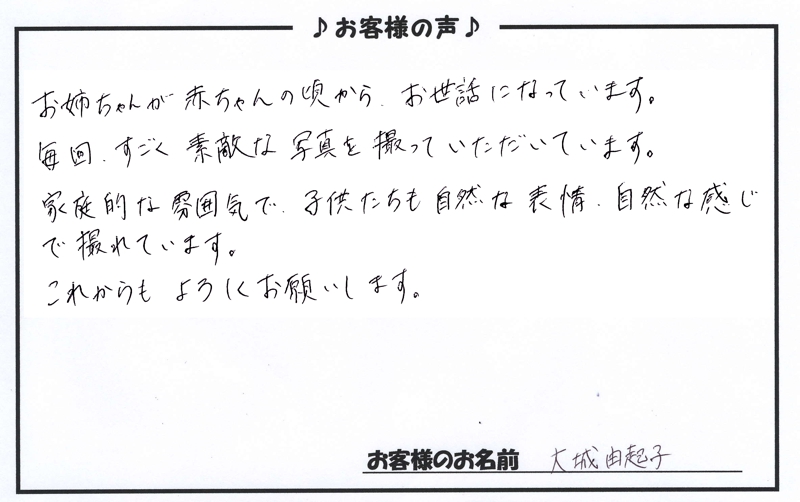 ♪お客様の声♪
お姉ちゃんが赤ちゃんの頃から、お世話になっています。
毎回、すごく素敵な写真を撮っていただいています。
家庭的な雰囲気で、子供たちも自然な表情、自然な感じ
で撮れています。
これからもよろしくお願いします。
お客様のお名前 大城由起子